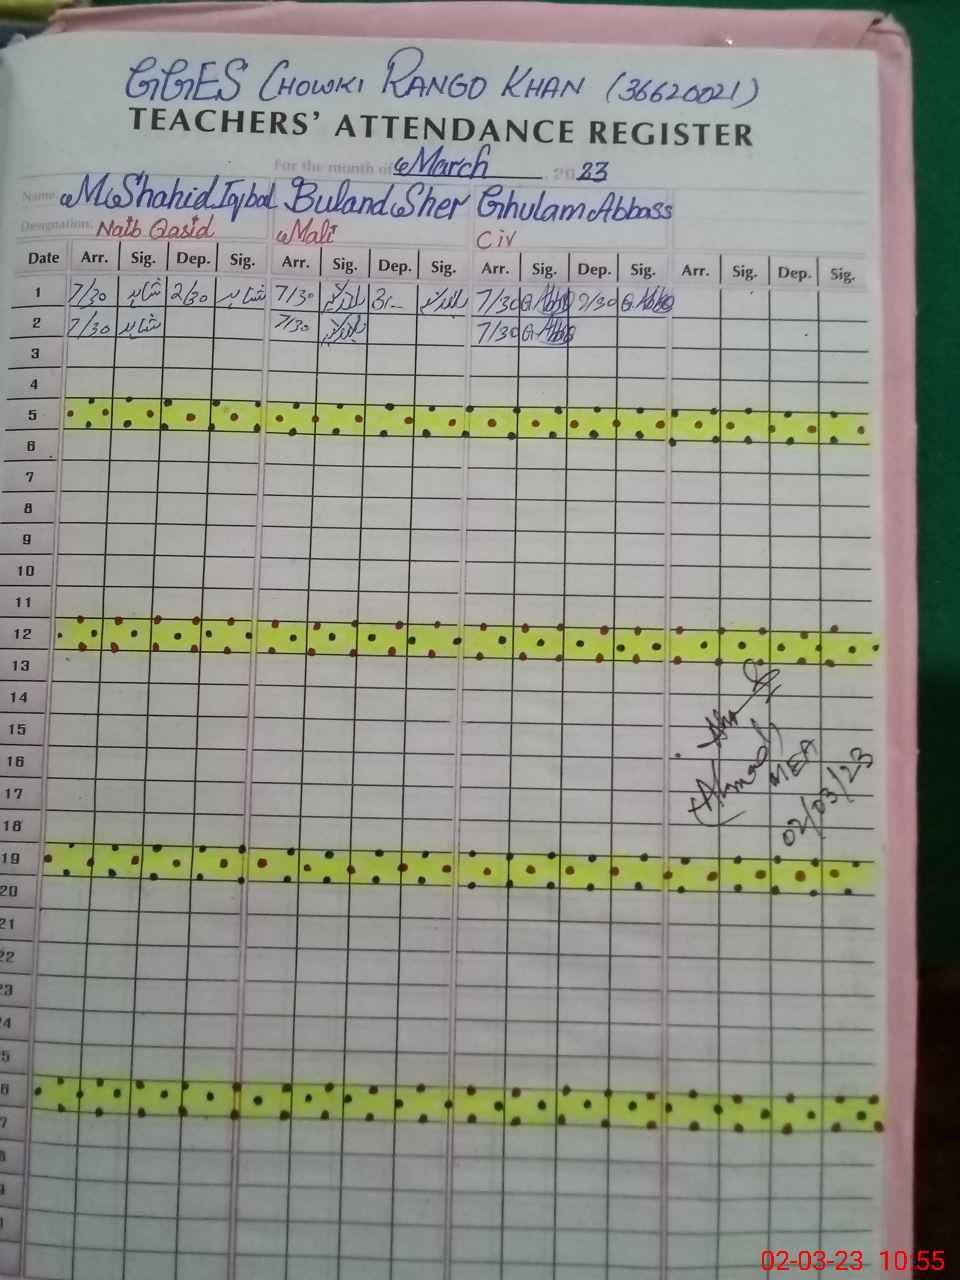 GGES CHOWKI RANGO KHAN (36620021)
TEACHERS' ATTENDANCE REGISTER
For the month of March 2023
Name M. Shahid Iqbal Buland Sher Ghulam Abbass
Designation. Naib Qasid Mali Civ
Date Arr. Sig. Dep. Sig. Arr. Sig. Dep. Sig. Arr. Sig. Dep. Sig. Arr. Sig. Dep. Sig.
1 7/30 شاہد 2/30 شاہد 7/30 7/30 G.Abbas G.Abbas
2 7/30 شاہد 7/30 7/30 G.Abbas
3
4
5
6
7
8
9
10
11
12
13
14
15
16
17
18
19
20
21
22
23
24
5
6
7
8
9
Ahmad
MEA
02/03/23
02-03-23 10:55